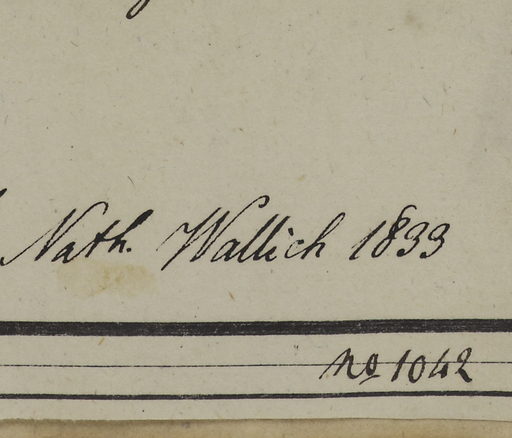 Nath. Wallich 1833
No 1042